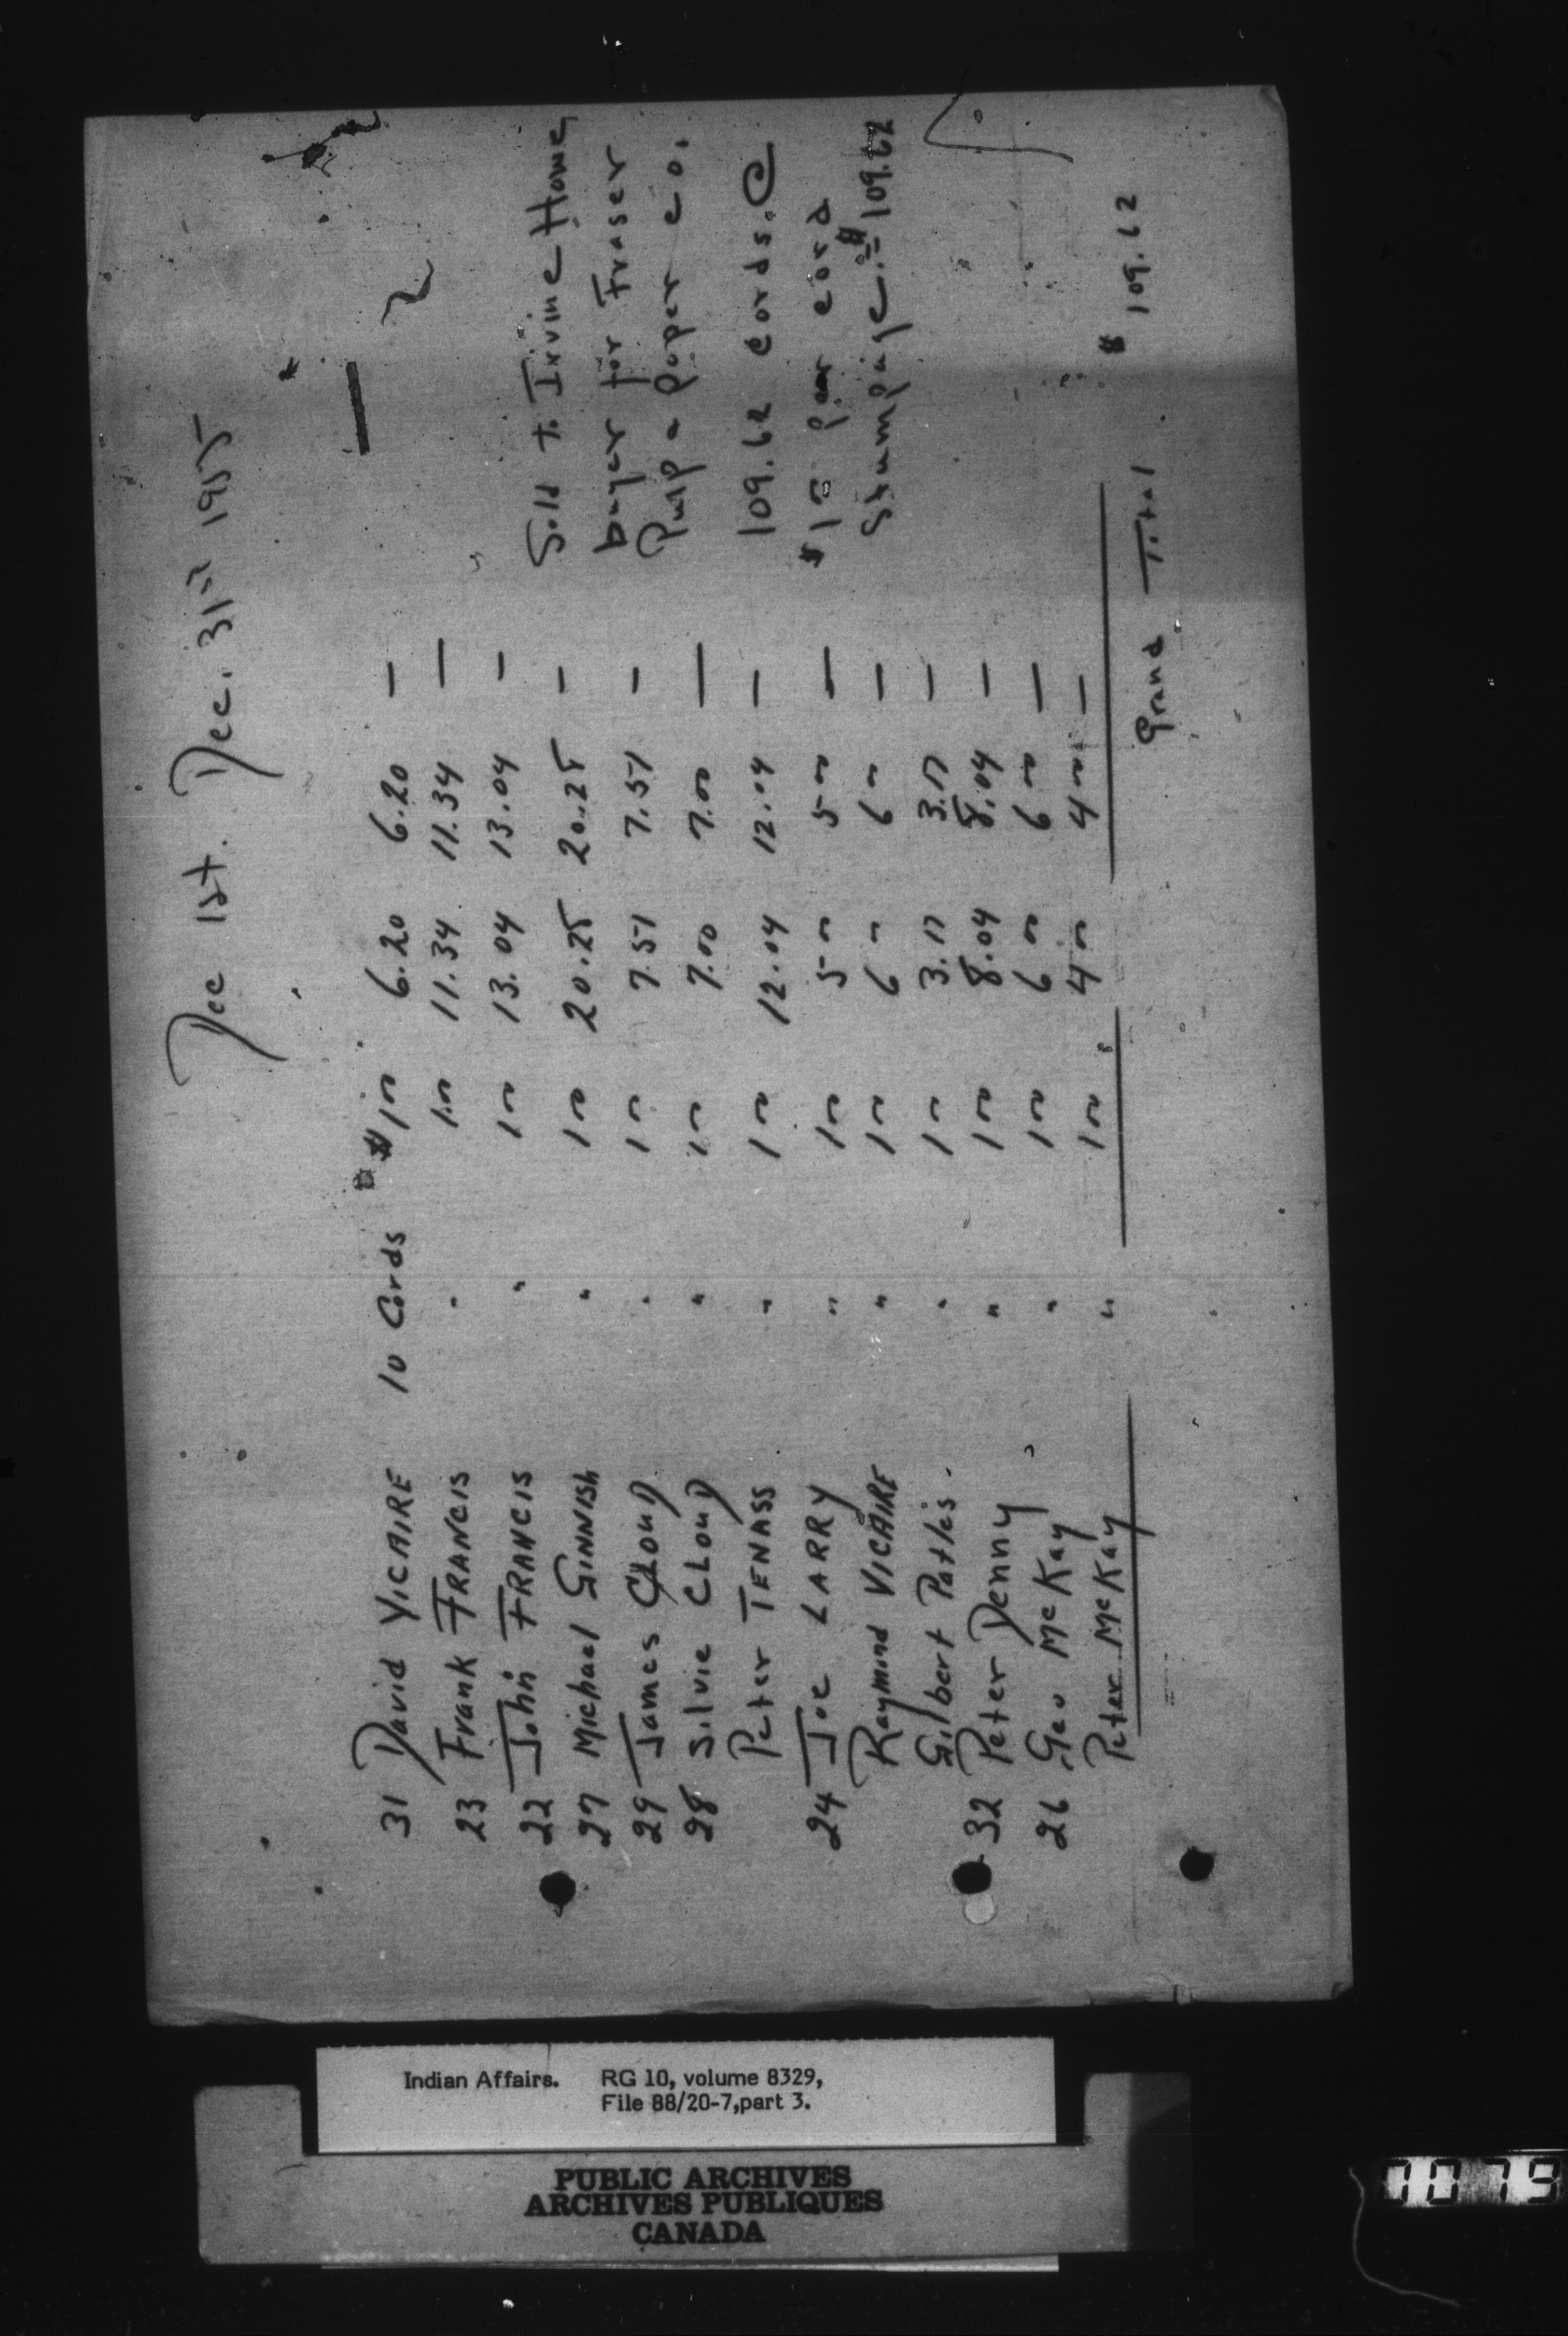 Dec 1st. Dec. 31st 1955
31 David VICAIRE 10 Cords $1.00 6.20 6.20 —
23 Frank FRANCIS " 1.00 11.34 11.34 —
22 John FRANCIS " 1.00 13.04 13.04 —
27 Michael GINNISh " 1.00 20.25 20.25 —
29 James CLOUD " 1.00 7.51 7.51 —
28 Silvie CLOUD " 1.00 7.00 7.00 —
Peter TENASS " 1.00 12.04 12.04 —
24 Joe LARRY " 1.00 5.00 5.00 —
Raymond VICAIRE " 1.00 6.00 6.00 —
Gilbert Patles. " 1.00 3.17 3.17 —
32 Peter Denny " 1.00 8.04 8.04 —
26 Geo McKay " 1.00 6.00 6.00 —
Peter McKay " 1.00 4.00 4.00 —
Sold to Irvine Howe,
buyer for Fraser
Pulp & paper co.
109.62 cords. @
$1.00 per cord
Stumpage. = $109.62
Grand Total $109.62
Indian Affairs. RG 10, volume 8329,
File 88/20-7,part 3.
PUBLIC ARCHIVES
ARCHIVES PUBLIQUES
CANADA